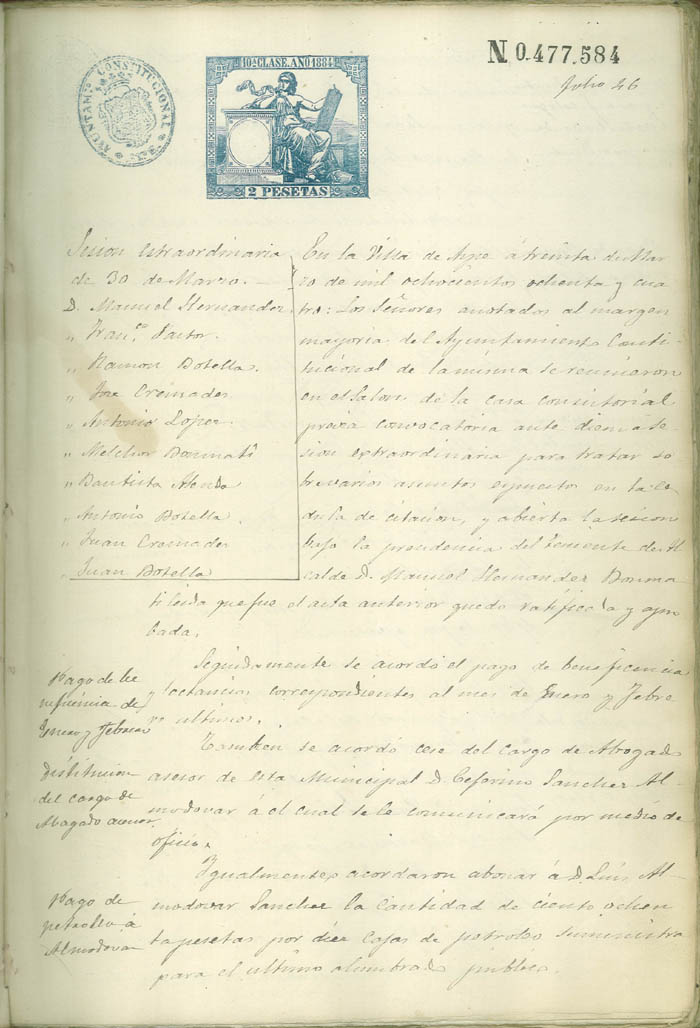 AYUNTAMTº CONSTITUCIONAL
10ª CLASE. AÑO 1884
2 PESETAS
N 0.477.584
Julio 26
Sesion estraordinaria
de 30 de Marzo.
D. Manuel Hernandez.
" Fran.co Pastor.
" Ramon Botella.
" Jose Cremades
" Antonio Lopez.
" Melchor Bonmatí
" Bautista Alenda
" Antonio Botella.
" Juan Cremades
" Juan Botella
En la Villa de Aspe á treinta de Mar
zo de mil ochocientos ochenta y cua
tro: Los Señores anotados al margen
mayoria del Ayuntamiento Consti-
tucional de la misma se reunieron
en el Salon de la casa consistorial
previa convocatoria ante diem á se
sion extraordinaria para tratar so
bre varios asuntos espuestos en la ce
dula de citacion, y abierta la sesion
bajo la presidencia del teniente de Al
calde D. Manuel Hernandez Bonma
ti leida que fue el acta anterior quedó ratificada y apro
bada.
Pago de be
neficencia de
Enero y Febrero
Seguidamente se acordó el pago de beneficencia
y lactancias correspondientes al mes de Enero y Febre
ro ultimos.
Distitucion
del cargo de
Abogado asesor
Tambien se acordó cese del cargo de Abogado
asesor de esta Municipal D. Ceferino Sanchez Al-
modovar á el cual se le comunicará por medio de
oficio.
Pago de
petroleo á
Almodovar
Igualmente acordaron abonar á D. Luis Al-
modovar Sanchez la cantidad de ciento ochen
ta pesetas por diez cajas de petroleo suministra
para el ultimo alumbrado publico.